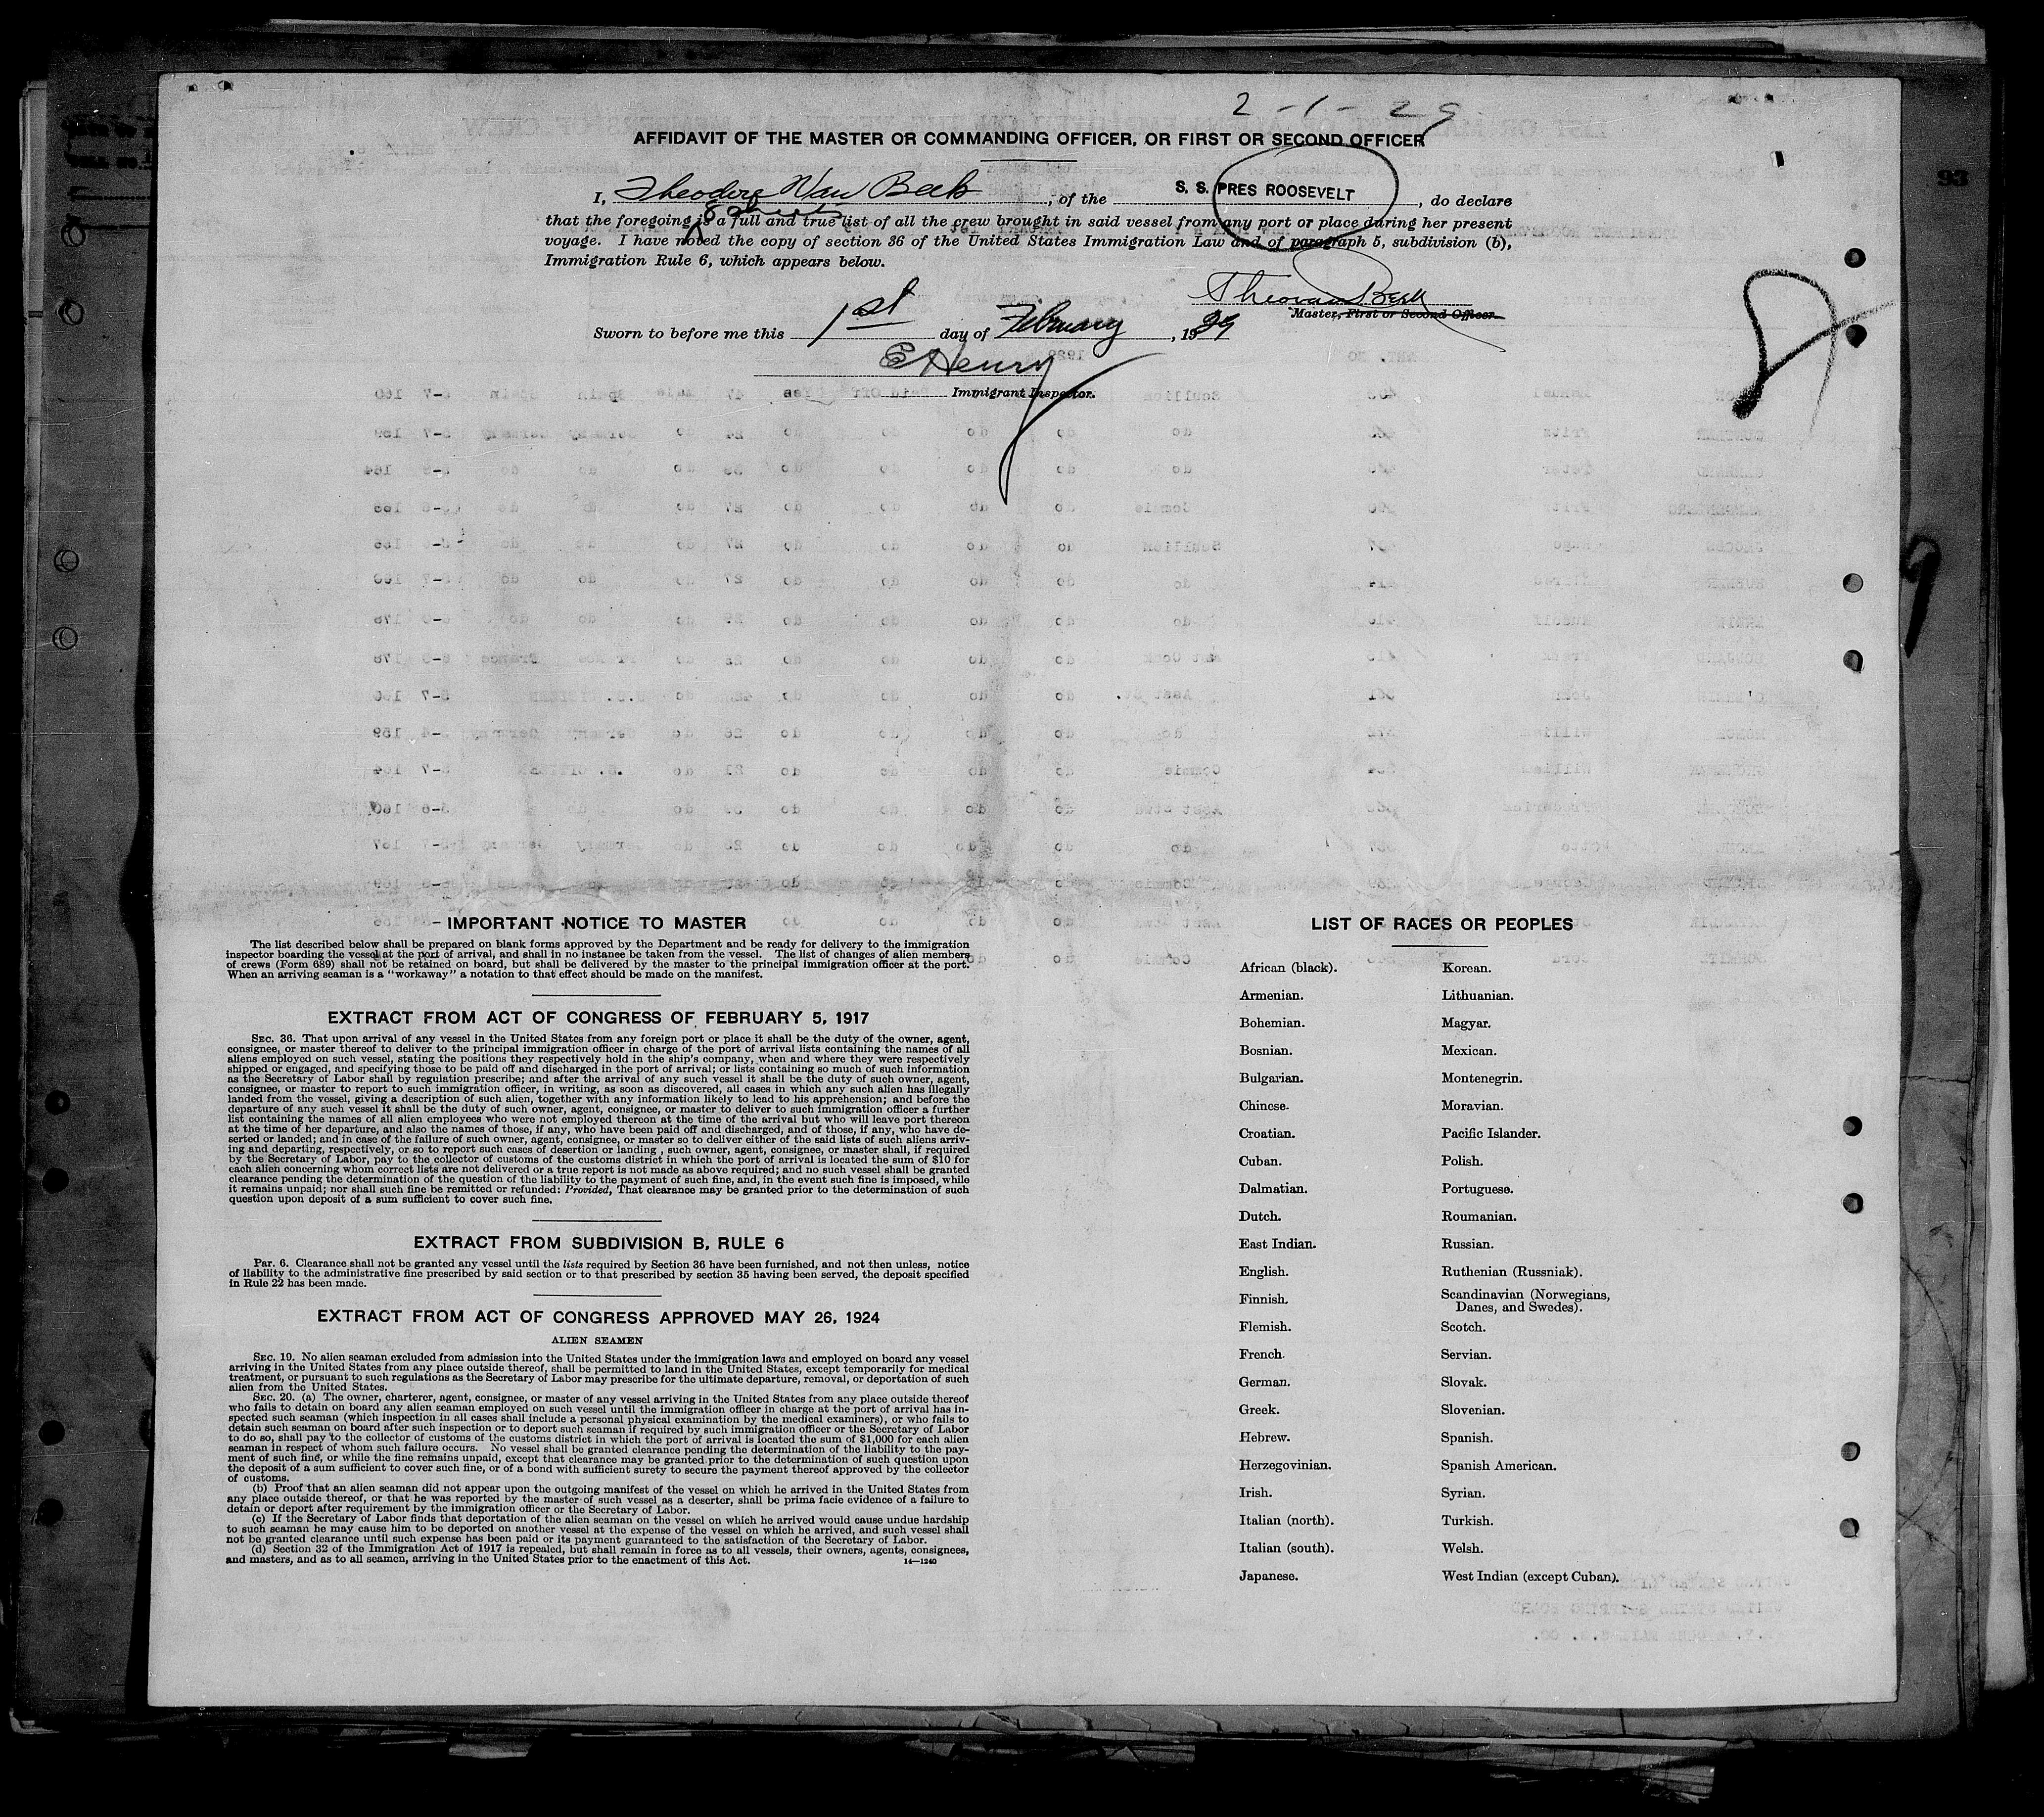 2-1-29
AFFIDAVIT OF THE MASTER OR COMMANDING OFFICER, OR FIRST OR SECOND OFFICER
I, Theodore Van Beek, of the S. S. PRES ROOSEVELT, do declare
that the foregoing is a full and true list of all the crew brought in said vessel from any port or place during her present
voyage. I have noted the copy of section 36 of the United States Immigration Law and of paragraph 5, subdivision (b),
Immigration Rule 6, which appears below.
Theo van Beek
Master, First or Second Officer.
Sworn to before me this 1st day of February, 1929
E Henry
Immigrant Inspector.
93
IMPORTANT NOTICE TO MASTER
The list described below shall be prepared on blank forms approved by the Department and be ready for delivery to the immigration
inspector boarding the vessel at the port of arrival, and shall in no instance be taken from the vessel. The list of changes of alien members
of crews (Form 689) shall not be retained on board, but shall be delivered by the master to the principal immigration officer at the port.
When an arriving seaman is a "workaway" a notation to that effect should be made on the manifest.
EXTRACT FROM ACT OF CONGRESS OF FEBRUARY 5, 1917
SEC. 36. That upon arrival of any vessel in the United States from any foreign port or place it shall be the duty of the owner, agent,
consignee, or master thereof to deliver to the principal immigration officer in charge of the port of arrival lists containing the names of all
aliens employed on such vessel, stating the positions they respectively hold in the ship's company, when and where they were respectively
shipped or engaged, and specifying those to be paid off and discharged in the port of arrival; or lists containing so much of such information
as the Secretary of Labor shall by regulation prescribe; and after the arrival of any such vessel it shall be the duty of such owner, agent,
consignee, or master to report to such immigration officer, in writing, as soon as discovered, all cases in which any such alien has illegally
landed from the vessel, giving a description of such alien, together with any information likely to lead to his apprehension; and before the
departure of any such vessel it shall be the duty of such owner, agent, consignee, or master to deliver to such immigration officer a further
list containing the names of all alien employees who were not employed thereon at the time of the arrival but who will leave port thereon
at the time of her departure, and also the names of those, if any, who have been paid off and discharged, and of those, if any, who have de-
serted or landed; and in case of the failure of such owner, agent, consignee, or master so to deliver either of the said lists of such aliens arriv-
ing and departing, respectively, or so to report such cases of desertion or landing, such owner, agent, consignee, or master shall, if required
by the Secretary of Labor, pay to the collector of customs of the customs district in which the port of arrival is located the sum of $10 for
each alien concerning whom correct lists are not delivered or a true report is not made as above required; and no such vessel shall be granted
clearance pending the determination of the question of the liability to the payment of such fine, and, in the event such fine is imposed, while
it remains unpaid; nor shall such fine be remitted or refunded: Provided, That clearance may be granted prior to the determination of such
question upon deposit of a sum sufficient to cover such fine.
EXTRACT FROM SUBDIVISION B, RULE 6
Par. 6. Clearance shall not be granted any vessel until the lists required by Section 36 have been furnished, and not then unless, notice
of liability to the administrative fine prescribed by said section or to that prescribed by section 35 having been served, the deposit specified
in Rule 22 has been made.
EXTRACT FROM ACT OF CONGRESS APPROVED MAY 26, 1924
ALIEN SEAMEN
SEC. 19. No alien seaman excluded from admission into the United States under the immigration laws and employed on board any vessel
arriving in the United States from any place outside thereof, shall be permitted to land in the United States, except temporarily for medical
treatment, or pursuant to such regulations as the Secretary of Labor may prescribe for the ultimate departure, removal, or deportation of such
alien from the United States.
SEC. 20. (a) The owner, charterer, agent, consignee, or master of any vessel arriving in the United States from any place outside thereof
who fails to detain on board any alien seaman employed on such vessel until the immigration officer in charge at the port of arrival has in-
spected such seaman (which inspection in all cases shall include a personal physical examination by the medical examiners), or who fails to
detain such seaman on board after such inspection or to deport such seaman if required by such immigration officer or the Secretary of Labor
to do so, shall pay to the collector of customs of the customs district in which the port of arrival is located the sum of $1,000 for each alien
seaman in respect of whom such failure occurs. No vessel shall be granted clearance pending the determination of the liability to the pay-
ment of such fine, or while the fine remains unpaid, except that clearance may be granted prior to the determination of such question upon
the deposit of a sum sufficient to cover such fine, or of a bond with sufficient surety to secure the payment thereof approved by the collector
of customs.
(b) Proof that an alien seaman did not appear upon the outgoing manifest of the vessel on which he arrived in the United States from
any place outside thereof, or that he was reported by the master of such vessel as a deserter, shall be prima facie evidence of a failure to
detain or deport after requirement by the immigration officer or the Secretary of Labor.
(c) If the Secretary of Labor finds that deportation of the alien seaman on the vessel on which he arrived would cause undue hardship
to such seaman he may cause him to be deported on another vessel at the expense of the vessel on which he arrived, and such vessel shall
not be granted clearance until such expense has been paid or its payment guaranteed to the satisfaction of the Secretary of Labor.
(d) Section 32 of the Immigration Act of 1917 is repealed, but shall remain in force as to all vessels, their owners, agents, consignees,
and masters, and as to all seamen, arriving in the United States prior to the enactment of this Act. 14—1240
LIST OF RACES OR PEOPLES
African (black).
Armenian.
Bohemian.
Bosnian.
Bulgarian.
Chinese.
Croatian.
Cuban.
Dalmatian.
Dutch.
East Indian.
English.
Finnish.
Flemish.
French.
German.
Greek.
Hebrew.
Herzegovinian.
Irish.
Italian (north).
Italian (south).
Japanese.
Korean.
Lithuanian.
Magyar.
Mexican.
Montenegrin.
Moravian.
Pacific Islander.
Polish.
Portuguese.
Roumanian.
Russian.
Ruthenian (Russniak).
Scandinavian (Norwegians,
Danes, and Swedes).
Scotch.
Servian.
Slovak.
Slovenian.
Spanish.
Spanish American.
Syrian.
Turkish.
Welsh.
West Indian (except Cuban).